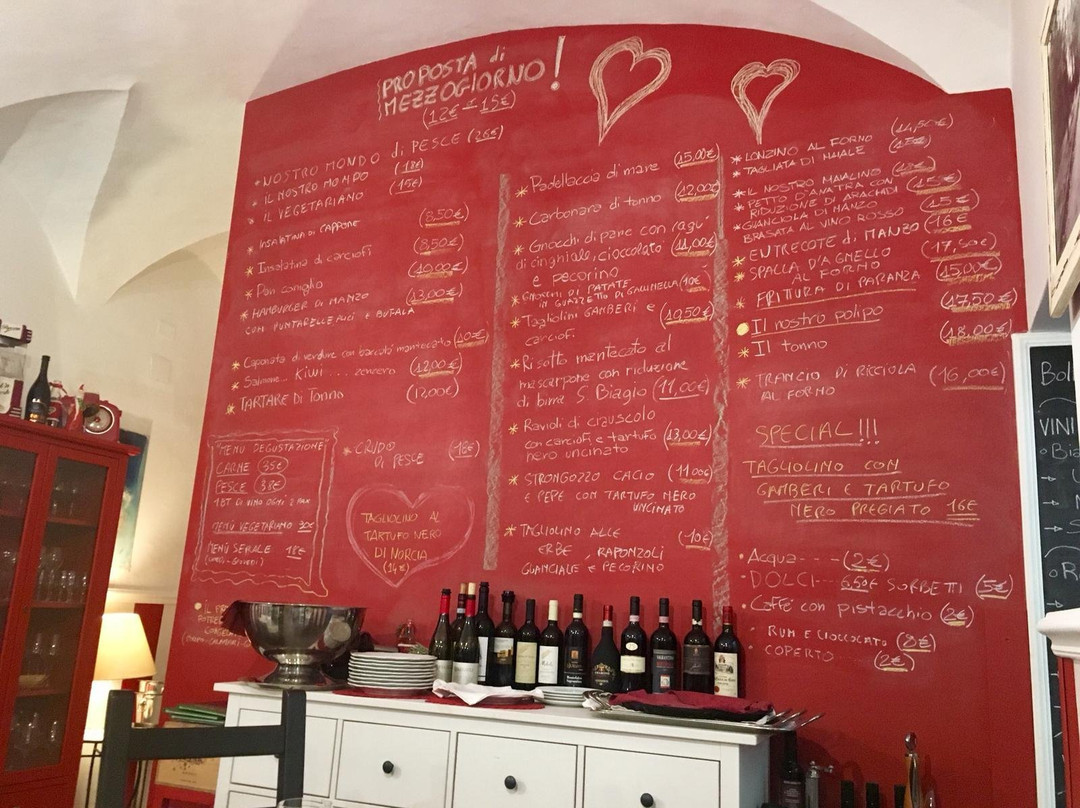 PROPOSTA di
MEZZOGIORNO!
(12€ - 15€)
NOSTRO MONDO di PESCE (26€)
IL NOSTRO MONDO (18€)
IL VEGETARIANO (15€)
INSALATINA DI CAPPONE 8,50€
Insalatina di carciofi (8,50€)
Pan coniglio (10,00€)
HAMBURGER DI MANZO (13,00€)
CON PUNTARELLE ALICI E BUFALA
Caponata di verdure con baccalà mantecato (10€)
Salmone... Kiwi.... zenzero (12,00€)
TARTARE DI Tonno (12,00€)
"MENÙ DEGUSTAZIONE
CARNE (35€)
PESCE (38€)
1BT DI VINO OGNI 2 PAX
MENÙ VEGETARIANO 30€
MENÙ SERALE 18€
CRUDO
DI PESCE (18€)
TAGLIOLINO AL
TARTUFO NERO
DI NORCIA
(14€)
Padellaccia di mare (15,00€)
Carbonara di tonno (12,00€)
Gnocchi di pane con ragù
di cinghiale, cioccolato (11,00€)
e pecorino
GNOCCHI DI PATATE
IN GUAZZETTO DI GALLINELLA (10€)
Tagliolini GAMBERI e (10,50€)
carciofi
Risotto mantecato al
mascarpone con riduzione
di birra S. Biagio (11,00€)
Ravioli di ciauscolo
con carciofi e tartufo (13,00€)
nero uncinato
STRONGOZZO CACIO (11,00€)
E PEPE CON TARTUFO NERO
UNCINATO
TAGLIOLINO ALLE (10€)
ERBE, RAPONZOLI
GUANCIALE E PECORINO
LONZINO AL FORNO (14,50€)
TAGLIATA DI MAIALE (15€)
IL NOSTRO MAIALINO
PETTO D'ANATRA CON
RIDUZIONE DI ARACHIDI
GUANCIOLA DI MANZO (15€)
BRASATA AL VINO ROSSO
ENTRECOTE di MANZO (16€
SPALLA D'AGNELLO (17,50€)
AL FORNO
FRITTURA DI PARANZA (15,00€)
Il nostro polipo (17,50€)
Il tonno (18,00€)
TRANCIO DI RICCIOLA (16,00€)
AL FORNO
SPECIAL!!!
TAGLIOLINO CON
GAMBERI E TARTUFO
NERO PREGIATO 16€
Acqua---- (2€)
DOLCI---- 6,50€ SORBETTI (5€)
Caffè con pistacchio (2€)
RUM E CIOCCOLATO (8€)
COPERTO (2€)
VINI